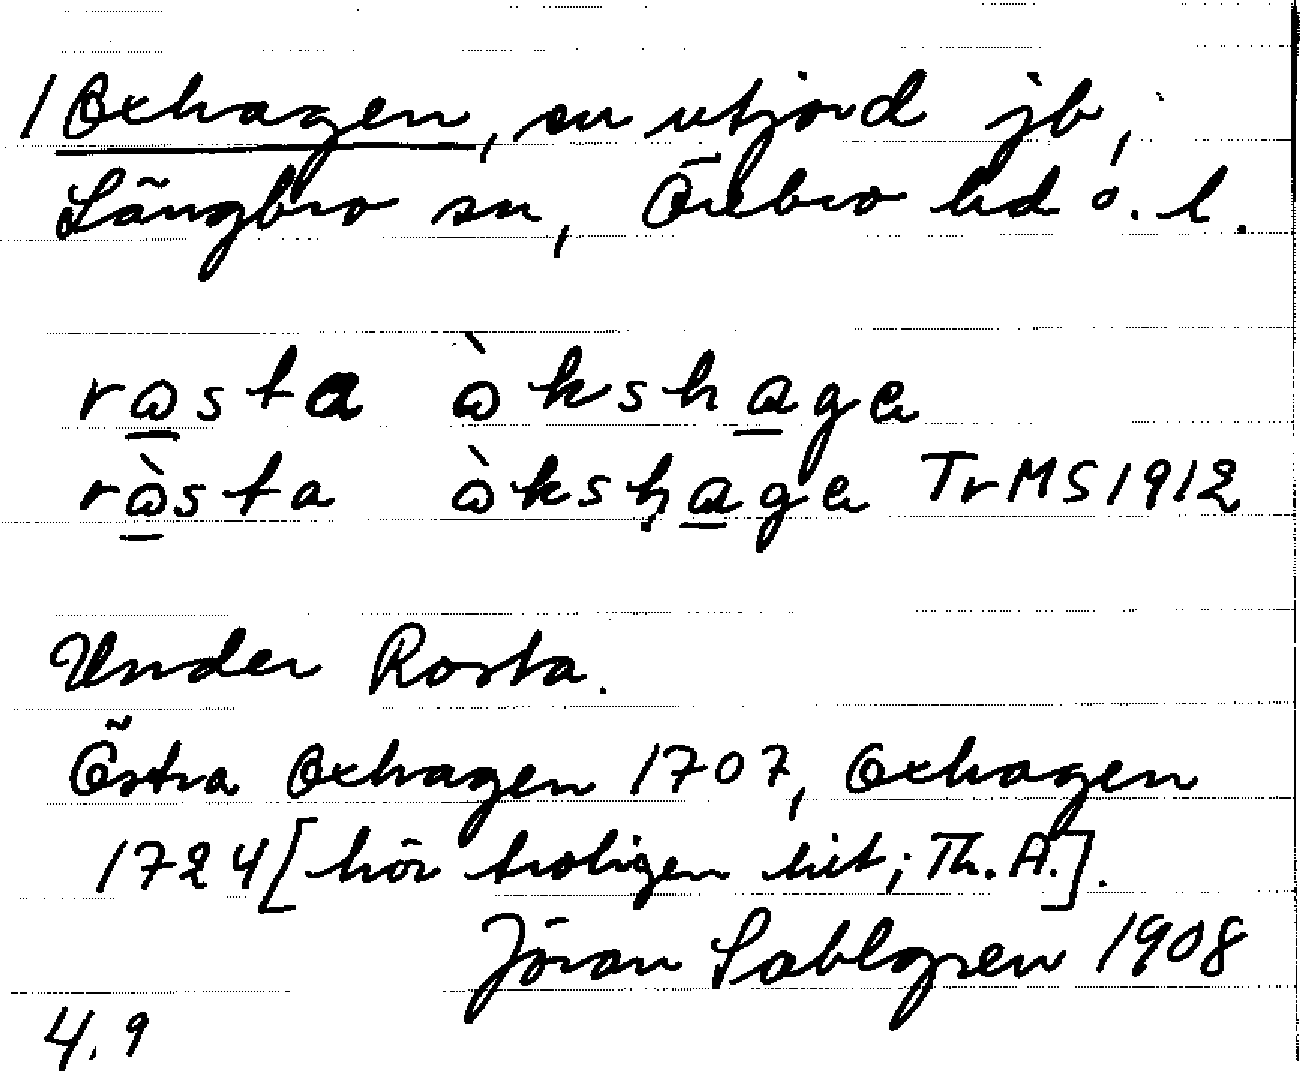 1 Oxhagen, su utjord jb,
Längbro sn, Örebro hd ö. l.
rɷsta ɷ̀kshage
rɷ̀sta ɷ̀kshage TrMS1912
Under Rosta.
Östra Oxhagen 1707, Oxhagen
1724 [hör troligen hit; Th. A.].
Jöran Sahlgren 1908
4. 9